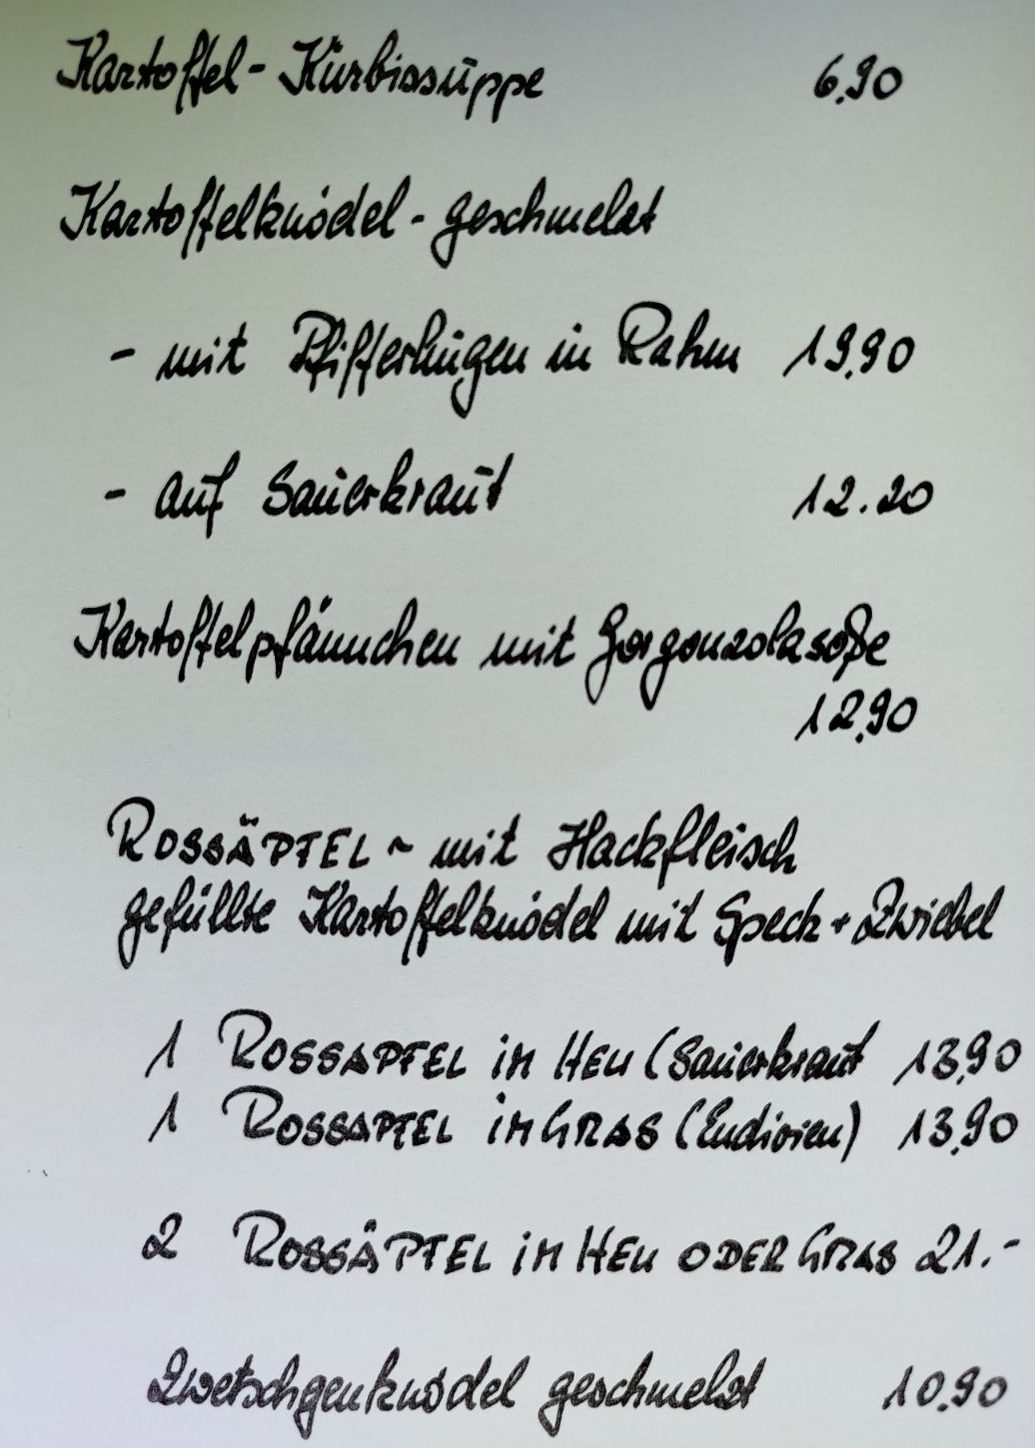 Kartoffel-Kürbissuppe 6.90
Kartoffelknödel - geschmelzt
- mit Pfifferlingen in Rahm 19.90
- auf Sauerkraut 12.20
Kartoffelpfännchen mit Gorgonzolasoße
12.90
ROSSÄPFEL ~ mit Hackfleisch
gefüllte Kartoffelknödel mit Speck + Zwiebel
1 ROSSAPFEL im HEU (Sauerkraut 13.90
1 ROSSAPFEL im GRAS (Endivien) 13.90
2 ROSSÄPFEL im HEU ODER GRAS 21.-
Zwetschgenknödel geschmelzt 10.90